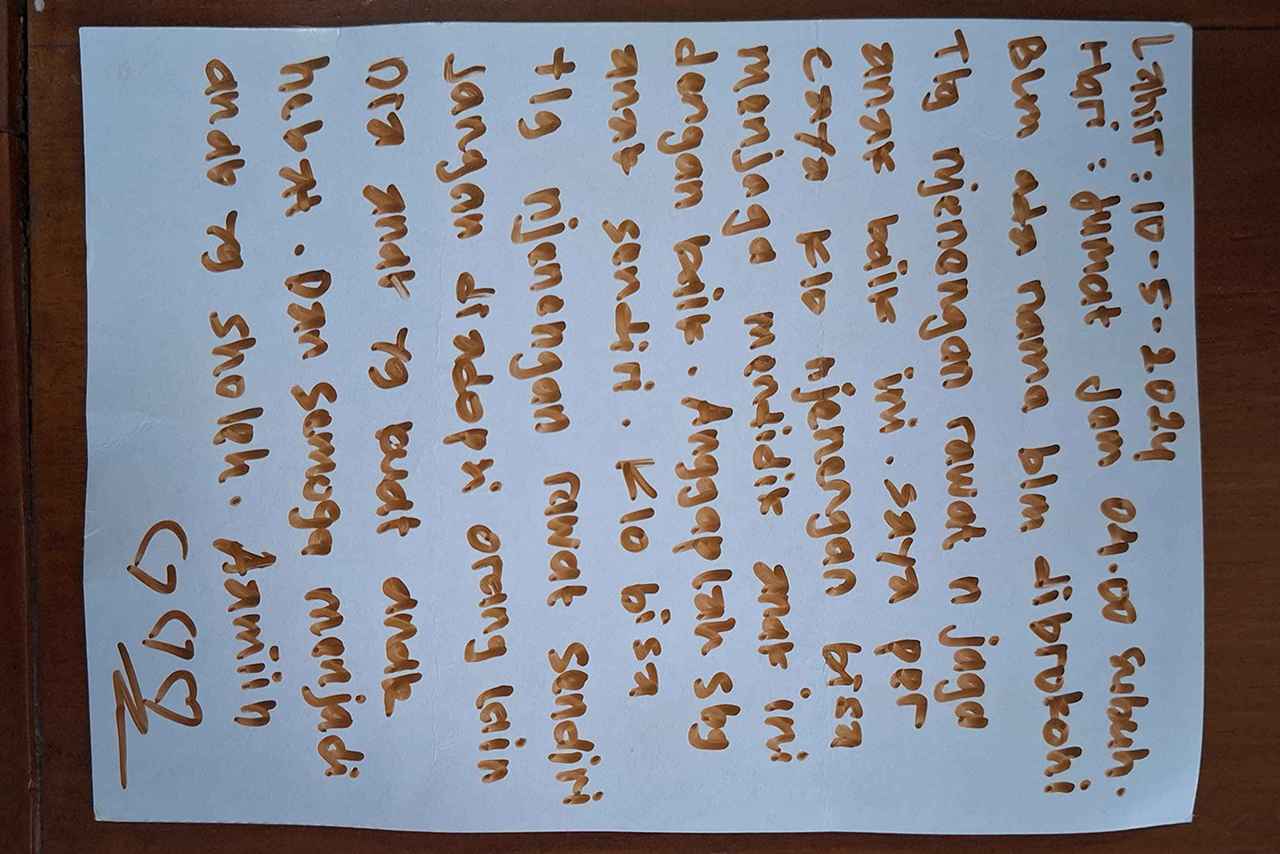 Lahir : 10-5-2024
Hari : Jumat Jam 04.00 subuh.
Blm ada nama blm dibrokohi
Tlg njenengan rawat n jaga
anak baik ini. saya per
caya klo njenengan bisa
menjaga mendidik anak ini
dengan baik. Anggaplah sbg
anak sendiri. Klo bisa
tlg njenengan rawat sendiri
Jangan diadopsi orang lain
Dia anak yg kuat anak
hebat. Dan semoga menjadi
anak yg sholeh. Aamiin